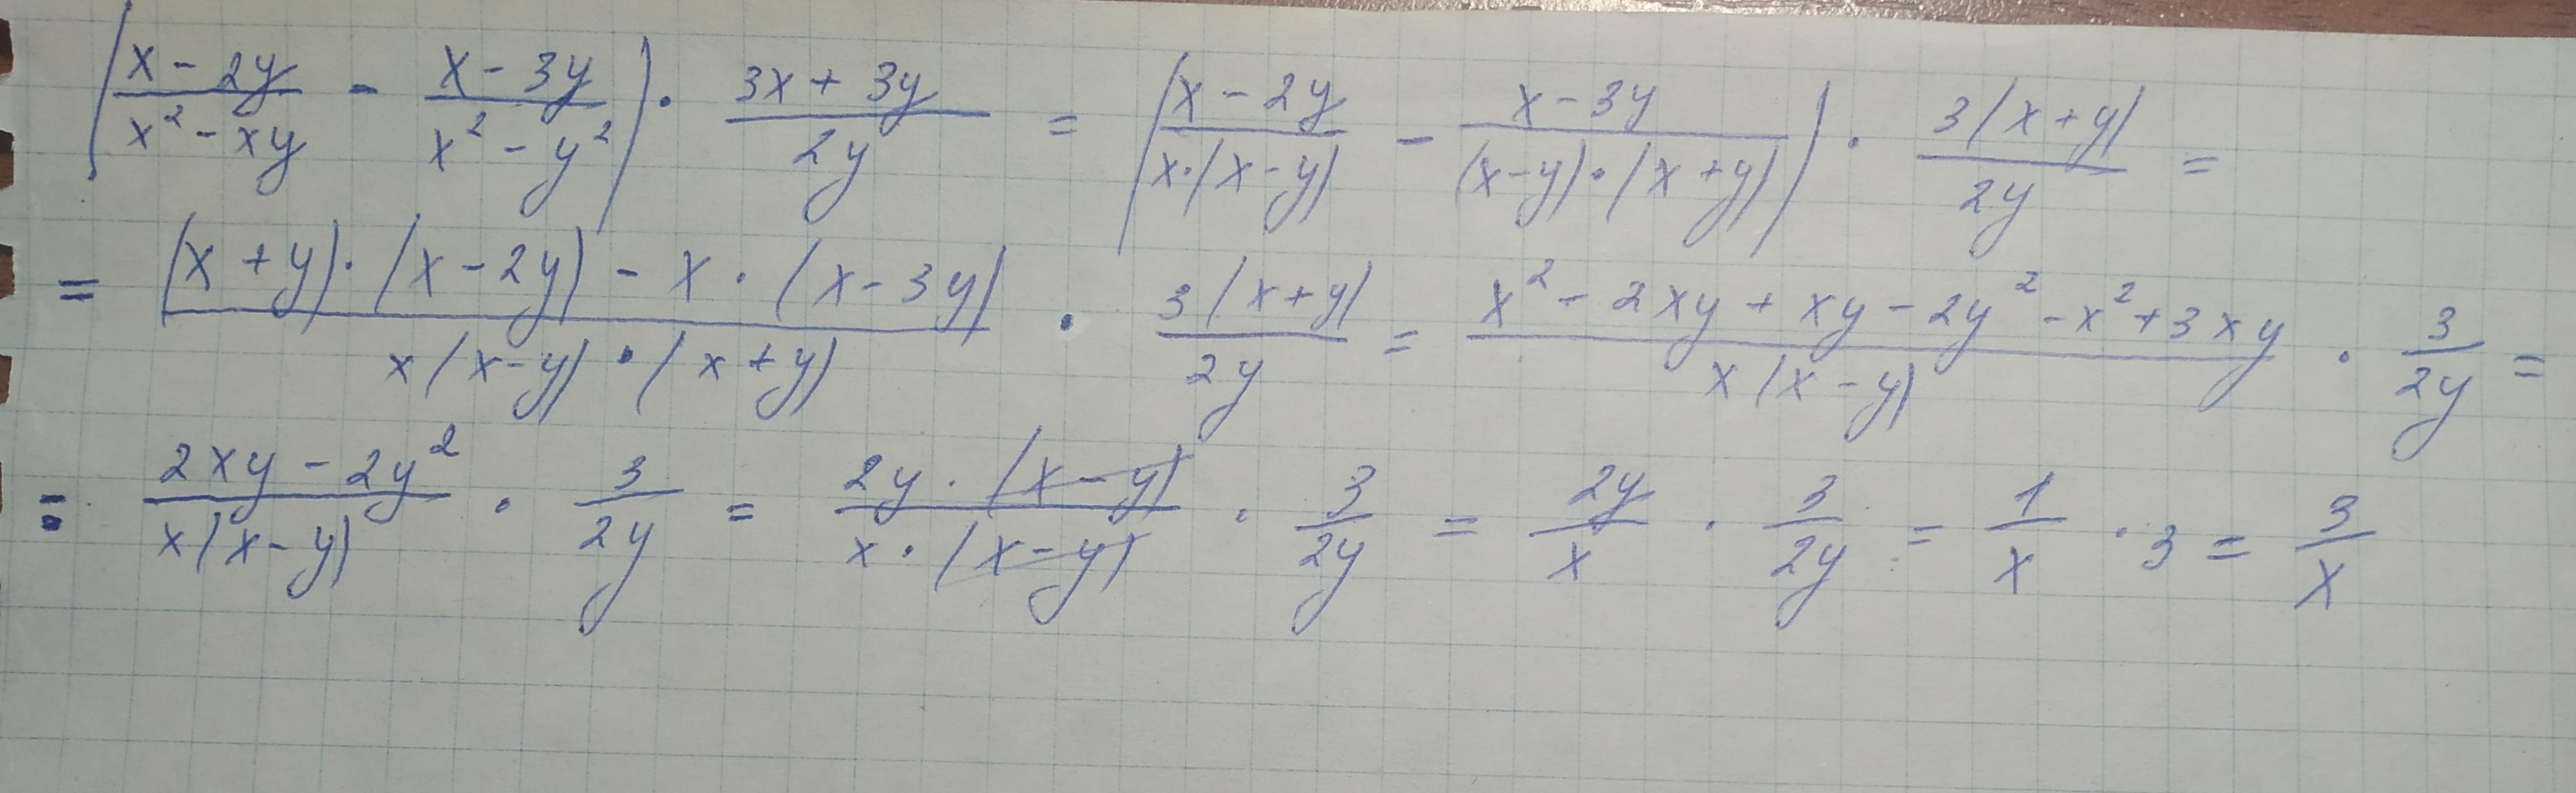 (x-2y/x²-xy - x-3y/x²-y²) · 3x+3y/2y = (x-2y/x·(x-y) - x-3y/(x-y)·(x+y)) · 3(x+y)/2y =
= (x+y)·(x-2y)-x·(x-3y)/x(x-y)·(x+y) · 3(x+y)/2y = x²-2xy+xy-2y²-x²+3xy/x(x-y) · 3/2y =
= 2xy-2y²/x(x-y) · 3/2y = 2y·(x-y)/x·(x-y) · 3/2y = 2y/x · 3/2y = 1/x · 3 = 3/x